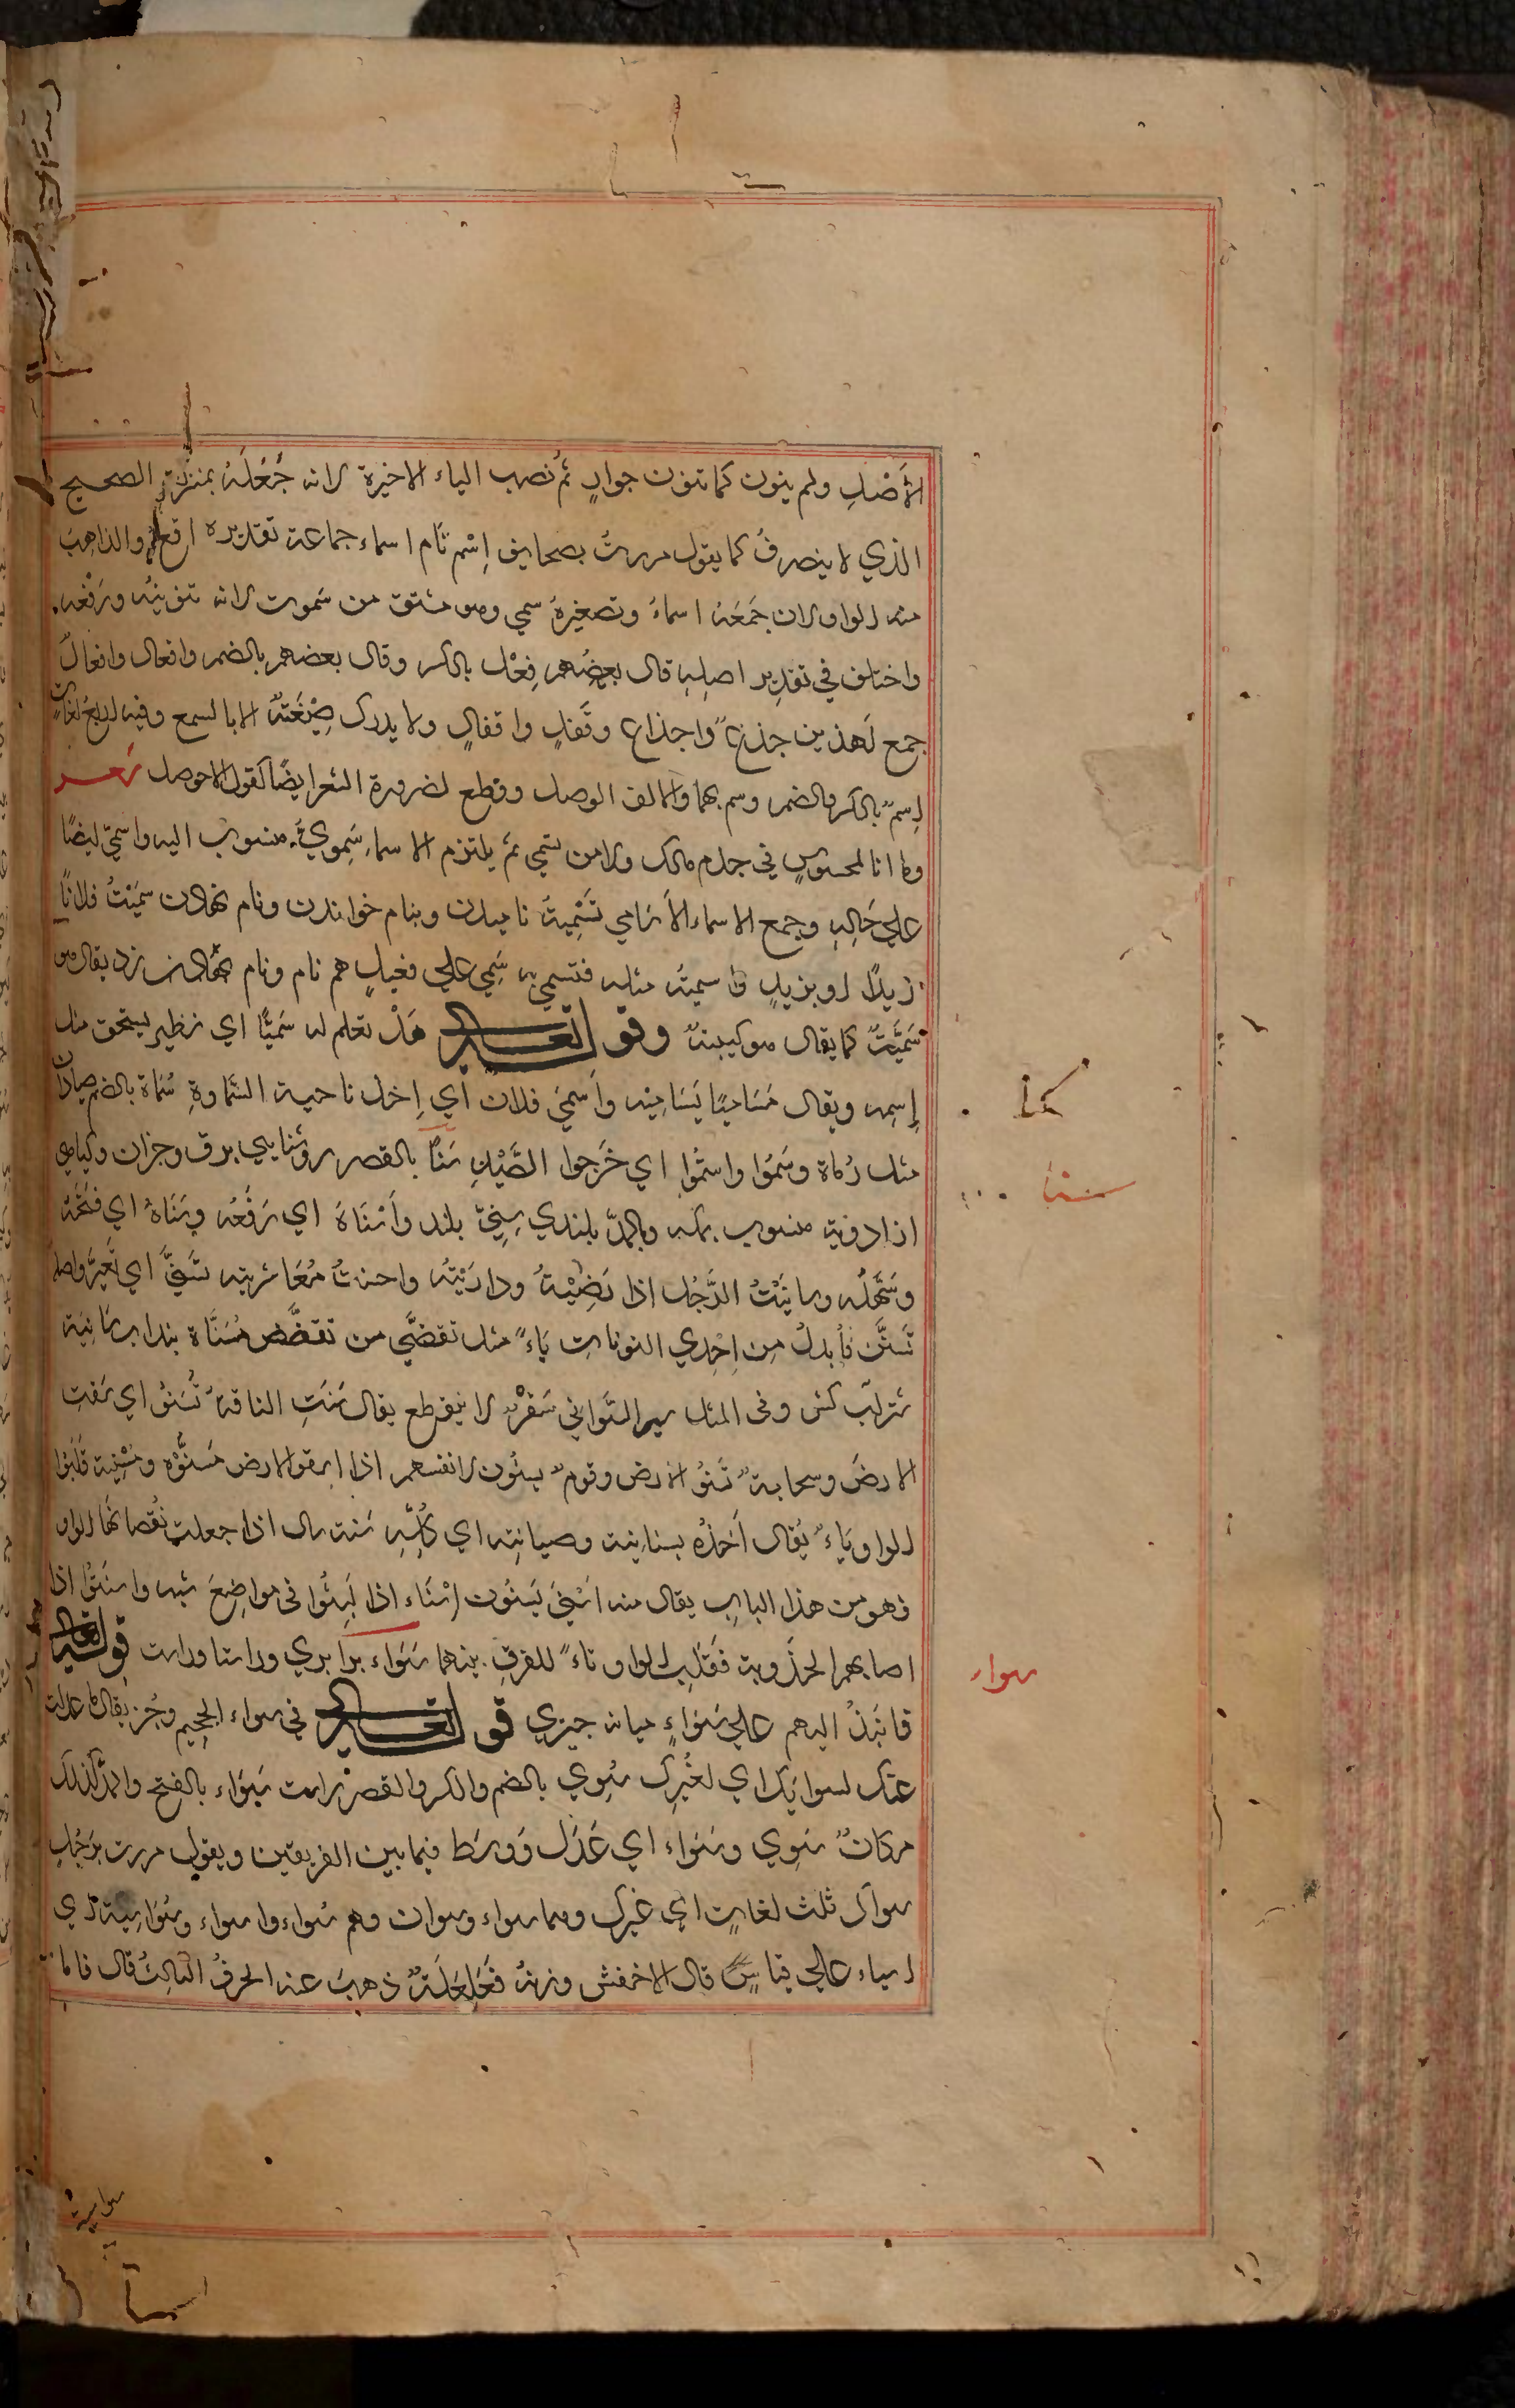 الأَصْلِ ولم ينون كما تنون جوارٍ ثم نصب الياء الاخيرة لانه جُعَلَهُ بمنزلة الصحيح
الذي لا ينصرفُ كما يقول مررتُ بصحايف اِسْم نام اسماء جماعة تقديره افع والذاهب
منه الواو لان جَمَعَهُ اسماءٌ وتصغيرهُ سمي وهو مشتق من سَموت لانه تنوينُه ورَفْعُه
واختلف في تقدير اصلِهِ قال بعضُهم فِعْل بالكسر وقال بعضهم بالضم وافعال وافعالٌ
جمع لَهذين جذعٌ واجذاع وقَفلٍ واقفالٍ ولا يدرك صِيْغَتهُ الا بالسمع وفيه اربعُ لغاتٍ
اِسمٌ بالكسر والضم وسم بهما والالف الوصل وقطع لضرورة الشعر ايضًا كقول الاحوص شعر
وما انا لمحسوسٍ في جذم مالك ولا من تسمى ثم يلتزم الاسماء سَمِوِيٌّ منسوب اليه واسميّ ايضًا
علي حَالِهِ وجمع الاسماء الأَسَامي تَسْمِيةٌ ناميدن وبنام خواندن ونام نهادن سَمَيْتُ فلانًا
زيدًا او بزيدٍ واسميتُه مثله فتسمي به سَمِي علي فعيلٍ هم نام ونام نهادن زد يقال هو
سَمَيّتُ كما يقال هو كيبنهٌ وقوله تعالى هَلْ تعلم له سَمَيًّا اي نظير يستحق مثل
اِسمِه ويقال مَسَامِيًا يَسَامِيْه واَسميَ فلان اي اِخذ ناحية السَّمَاوةِ سُمَاة بالضم صيادان
مثل رُماة وسَمَوا واستمُوا اي خَرَجوا الصَّيْدِ سَنًا بالقصر روشنايي برق وجزان وكياهي
ازادوية منسوب بمكه وبالمدّ بلندي سِنِيّ بلند واَسْنَاهُ اي رَفَعُه وسَنَاهُ اي فتَحَهُ
وسَهَّلَه وسانَيْتُ الرَّجُل اذا رَضِيْتُهُ ودارَيْتُه واحسنتُ مُعَاشرتِه تَسَنَّى اي تَغَيَّرَ واصلُه
تَسَنَّن فاُبدلُ مِن اِحْدي النونات يَاءً مثل تقضَّي من تقضَّض مُسَنَّاة بندابر سَانِيَة
شترآب كش وفى المثل سير السَّوَاني سَفرٌ لا ينقطع يقال سَنَتِ الناقةُ تَسْنُوا اي سَقتِ
الارضَ وسحابةٌ تَسْنُو الارض وقومٌ يسنُون لانفسهم اذا استقوا الارض مَسْنُوّه ومَسْنِيه قَلَبُوا
الواو يَاءً يُقال أَخَذُه بسنايته وصيانتِه اي كُلِّهِ سَنه سال اذا جعلت نقصانُها الواو
فهو من هذا الباب يقال منه اَسْنَي يُسْنُون اِسْنَاء اذا لَبِثُوا فى مواضعَ سَنه واسْنَتُوا اذا
اصابهم الجذُوبة فَقَلَبِ الواو تاءً للفرقِ بينهما سَوَاء برابري وراستا وراست قوله تعالى
فانبَذْ اليهم علي سَوَاءٍ ميانه چيزي قوله تعالى في سواء الجحيم وجُز يقال ما عدلت
عنك لسوائِك اي لغيرِك سُوِي بالضم والكسر والقصر راست سَوَاء بالفتح والمدّ كذلك
مركانٌ سُوِي وسَوَاء اي عَدْل ووسَط فيما بين الفريقين ويقول مررت برَجُلٍ
سواك ثلث لغاتٍ اي غيرِك وهما سواء وسوان وهم سَواء واسواء وسَوَاسِيَة اي
اسياء علي قياسٍ قال الاخفش وزنهُ فَعَافِلَةٌ ذهبَ عنه الحرفُ الثالثُ قال فاما
سما
سنا
سواء
سواسية